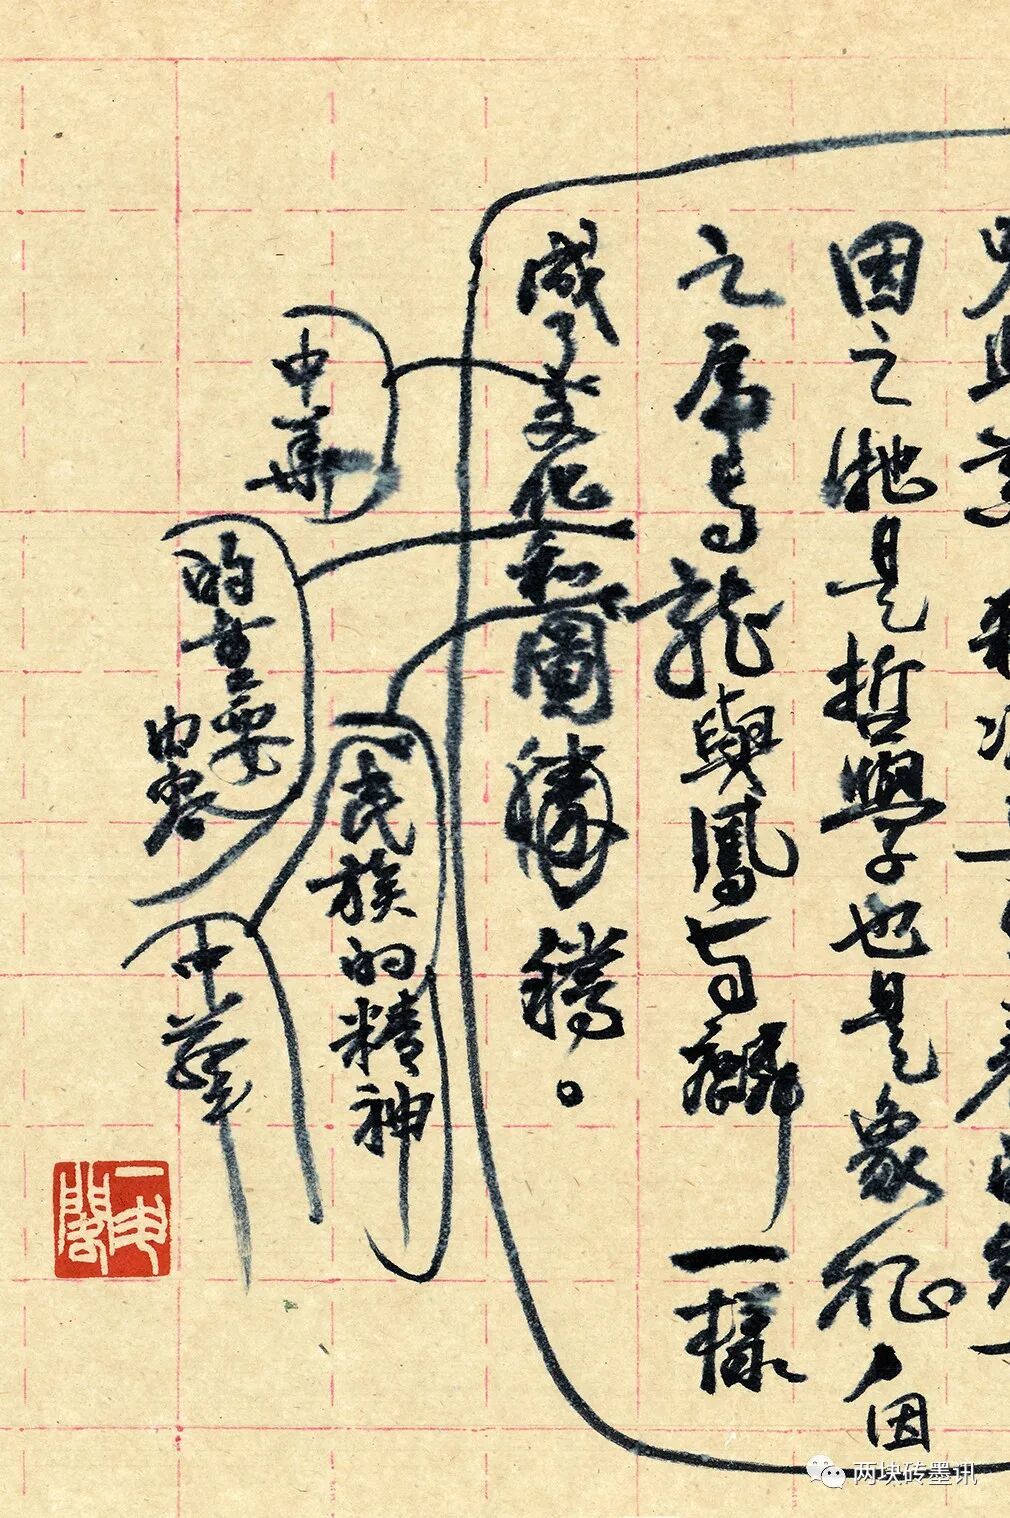 因之牠是哲學也是象征，因
之虎与龍與鳳与麟一樣
成了文化和圖騰。
中華
的重要
内容
民族的精神
中華
两块砖墨讯